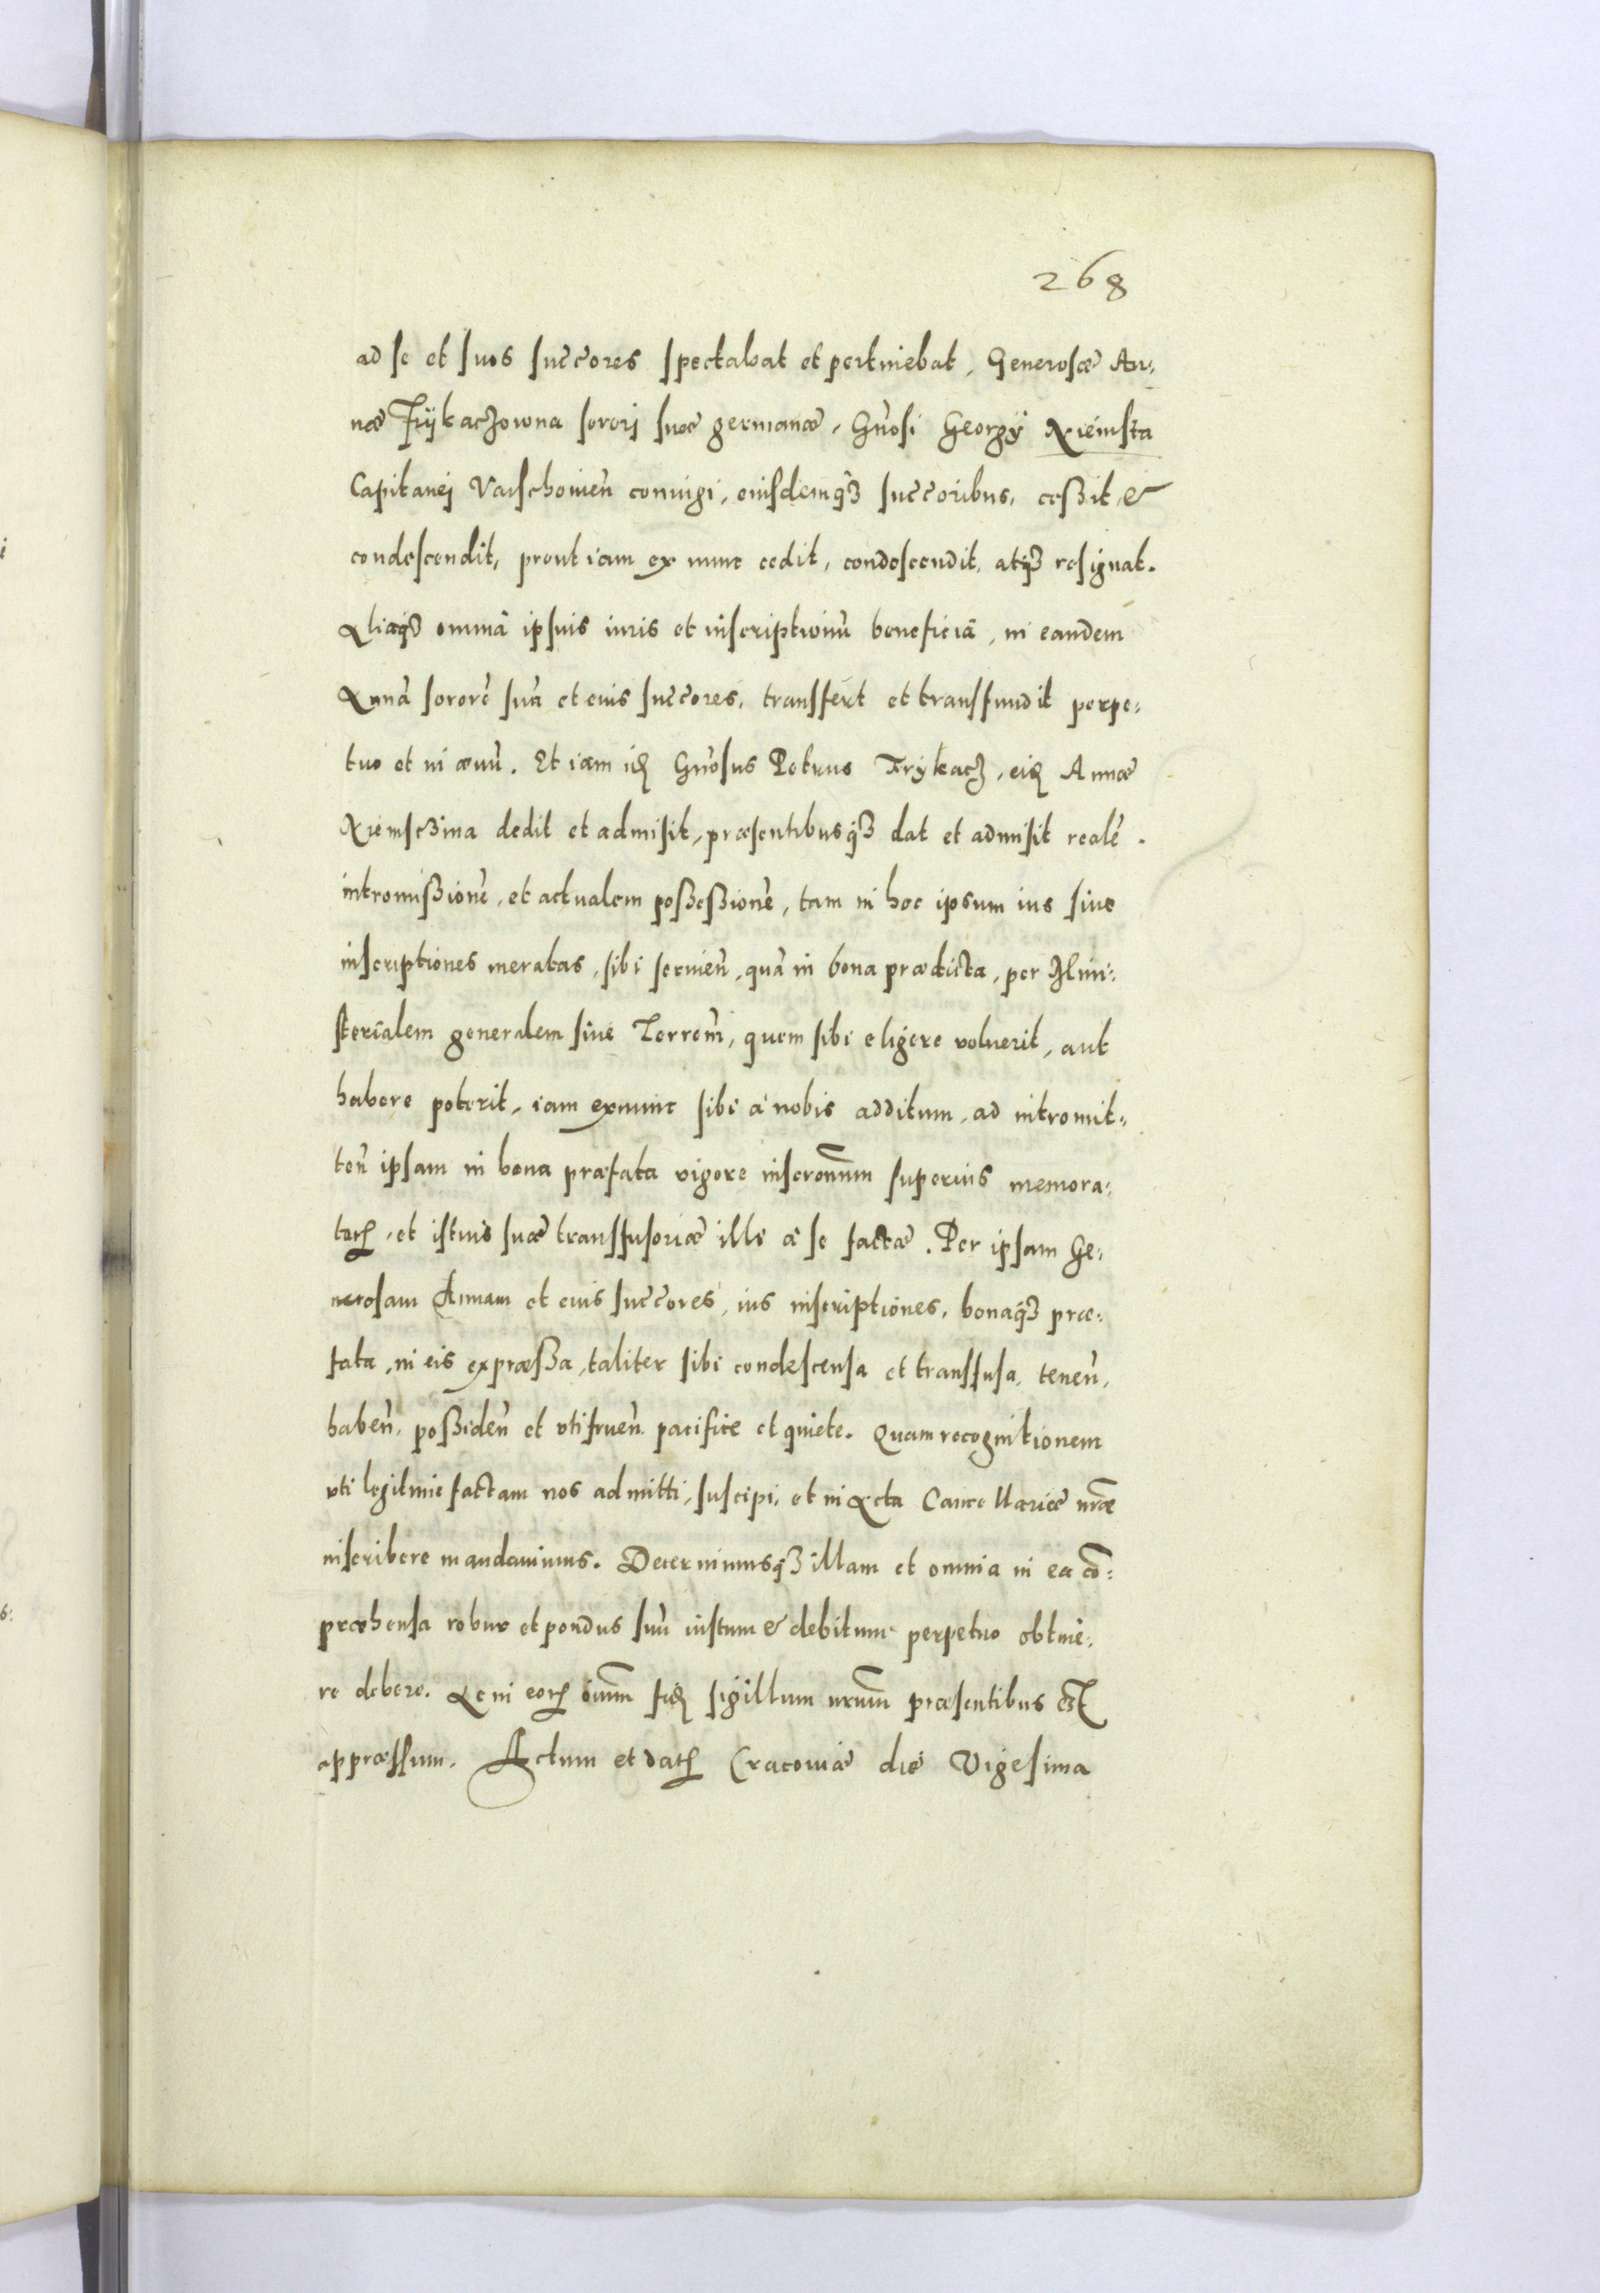 268
ad se et suos succores spectabat et pertinebat, Generosæ An¬
næ Frÿkaczowna sorori suæ germanæ, Gnosi Georgÿ Niemsta
Capitanei Varschouien coniugi, eiusdemq3 succoribus, ceßit &
condescendit, prout iam ex nunc cedit, condescendit, atq3 resignat.
Aliaq3 omnia ipsius iuris et inscriptionũ beneficia, in eandem
Annã sororẽ suã et eius succores, transfert et transfundit perpe¬
tuo et in æuũ. Et iam id Gnosus Petrus Frÿkacz, eid Annæ
Niemsczina dedit et admisit, præsentibusq3 dat et admisit realẽ
intromißionẽ, et actualem poßeßionẽ, tam in hoc ipsum ius siue
inscriptiones meratas, sibi seruieñ, quã in bona prædicta, per Mini¬
sterialem generalem siue Terreñ, quem sibi eligere voluerit, aut
habere poterit, iam exnunc sibi à nobis additum, ad intromit¬
teñ ipsam in bona præfata vigore inscronum superius memora¬
tarũ, et istius suæ transfusoriæ illi à se factæ. Per ipsam Ge¬
nerosam Annam et eius succores, ius inscriptiones, bonaq3 præ¬
fata, in eis expræßa, taliter sibi condescensa et transfusa, teneñ,
habeñ, poßideñ et vtifrueñ pacifice et quiete. Quam recognitionem
vti legitmie factam nos admitti, suscipi, et in Acta Cancellariæ nræ
inscribere mandauimus. Decernimusq3 illam et omnia in ea cõ¬
præhensa robur et pondus suũ iustum & debitum perpetuo obtine¬
re debere. Ac in eorũ oium fid sigillum nrum præsentibus est
appræssum. Actum et datũ Cracouiæ die Vigesima